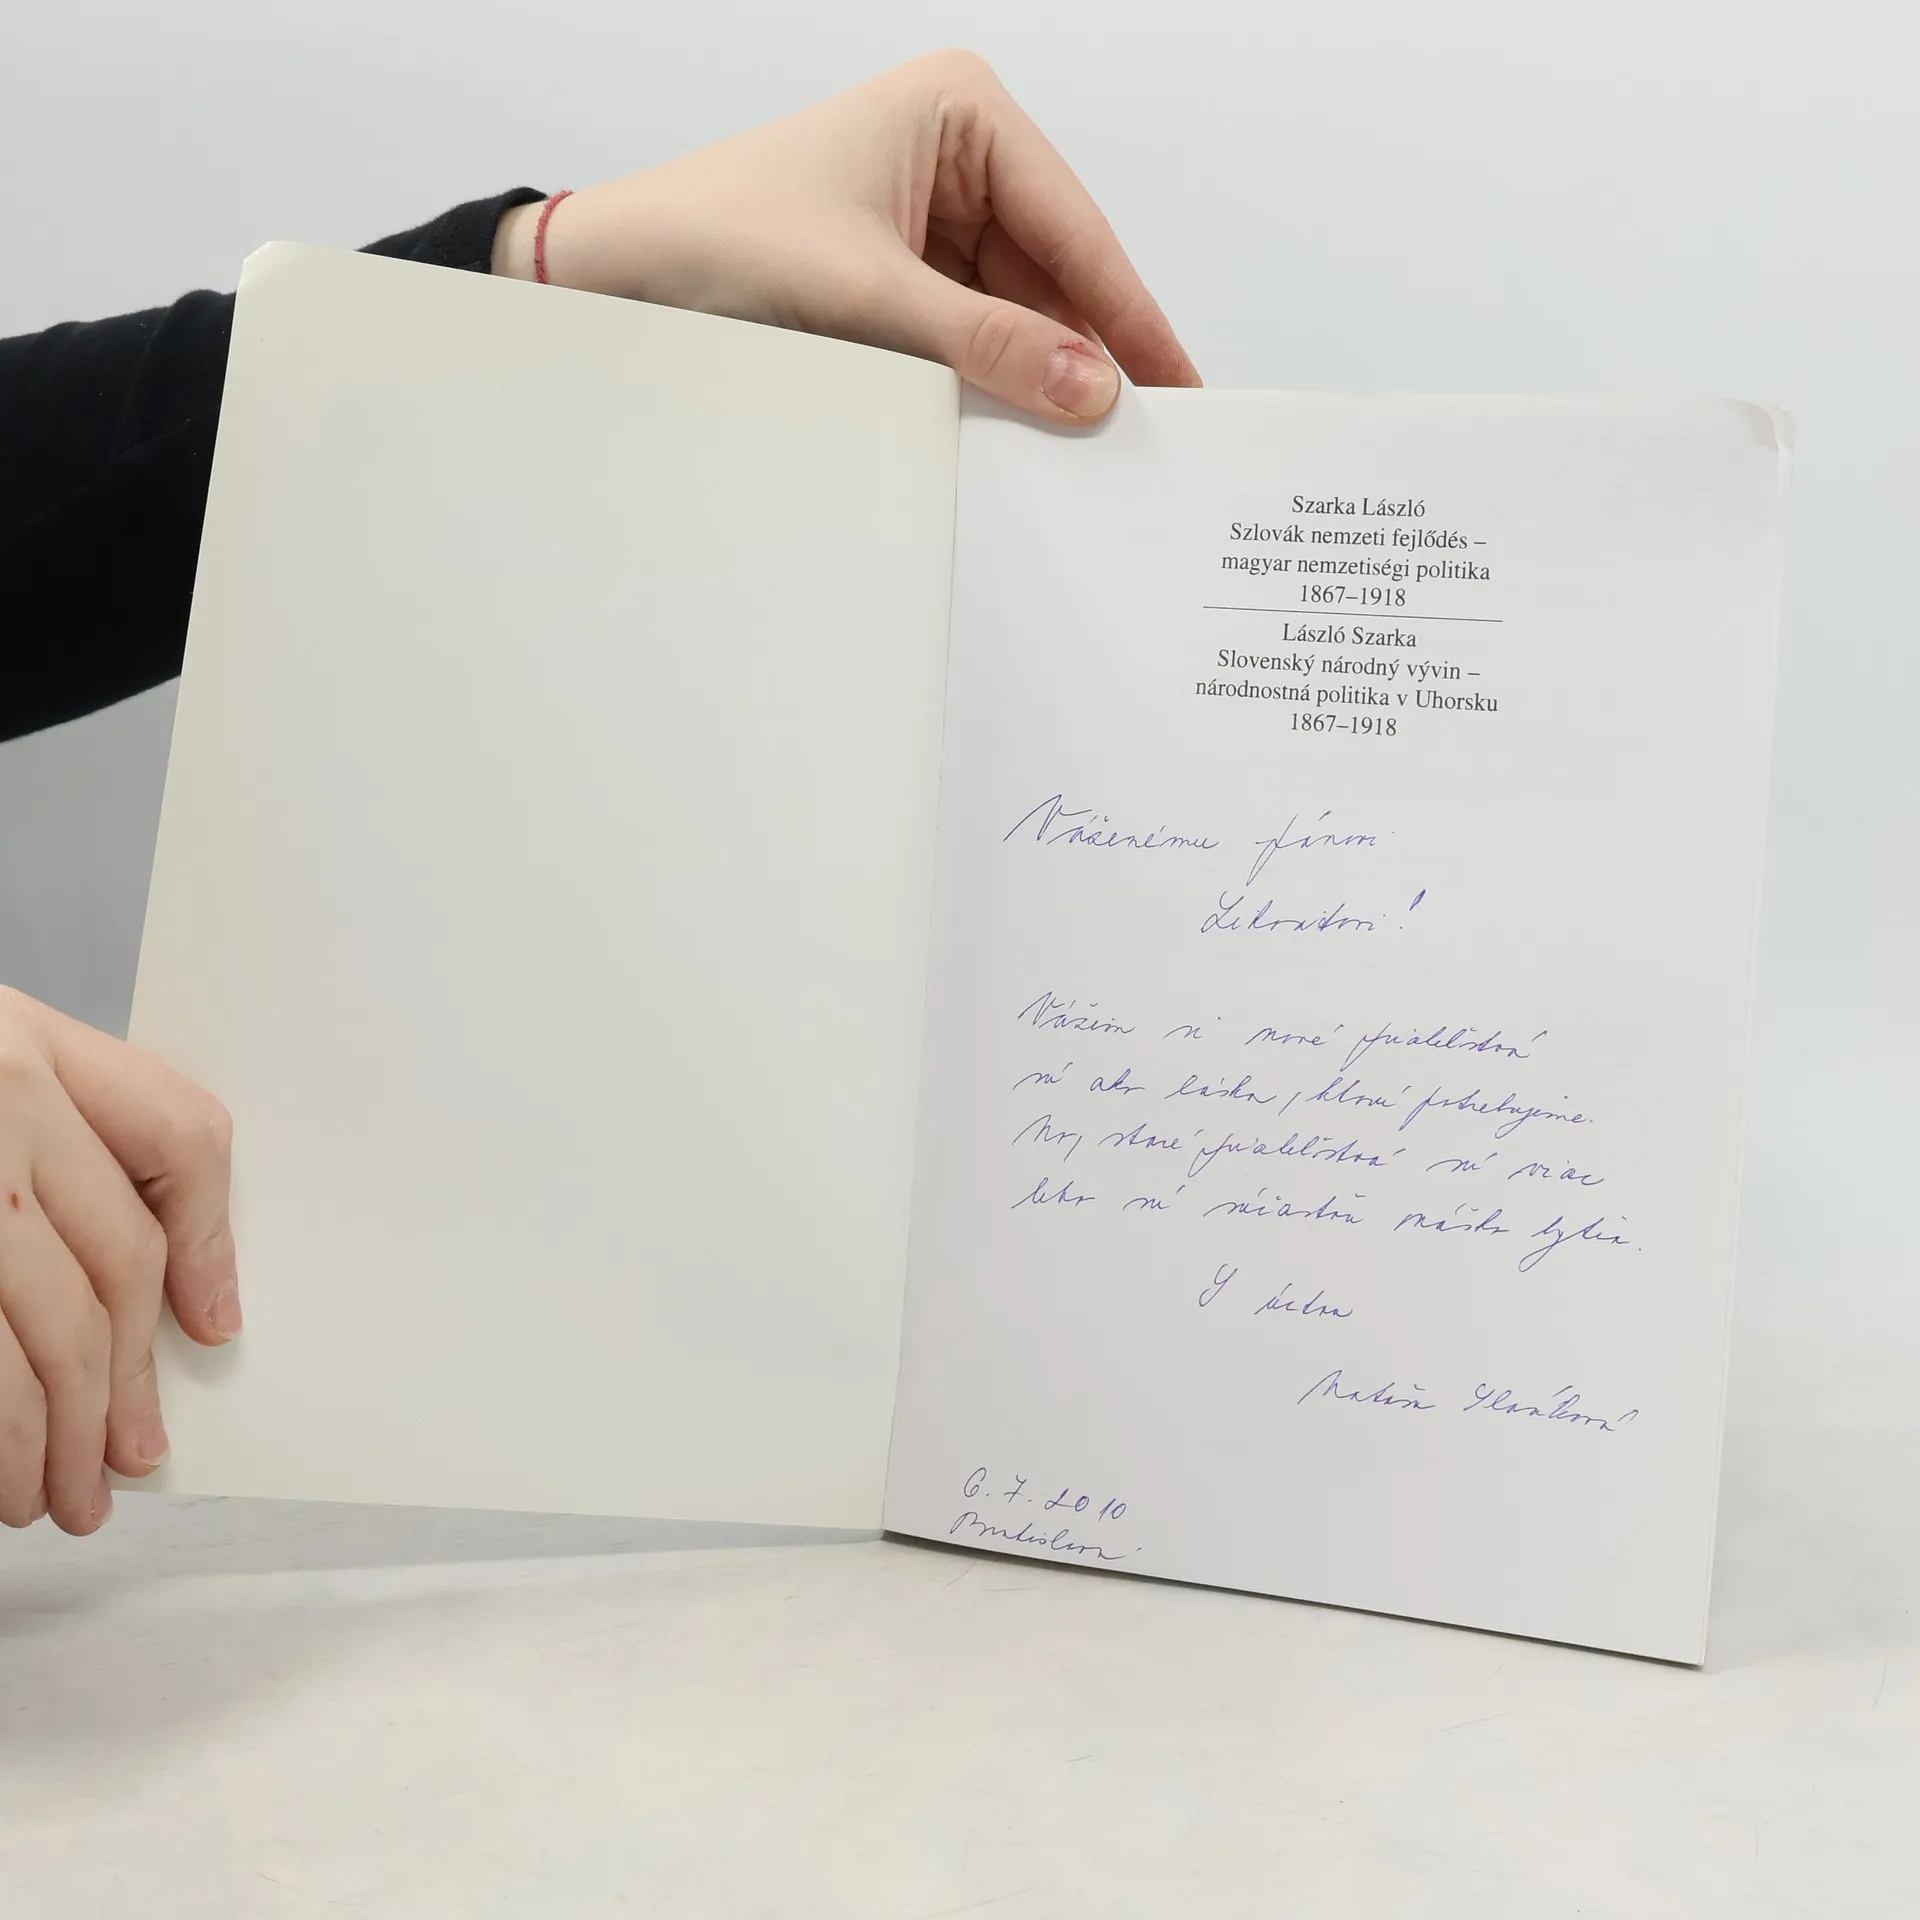 Szarka László
Szlovák nemzeti fejlődés –
magyar nemzetiségi politika
1867–1918
László Szarka
Slovenský národný vývin –
národnostná politika v Uhorsku
1867–1918
Váženému pánovi
Vážim si nové priateľstvá
sú ako láska, ktorú potrebujeme.
No, staré priateľstvá sú viac
lebo sú súčasťou nášho bytia.
S úctou
Nataša
6. 7. 2010
Bratislava